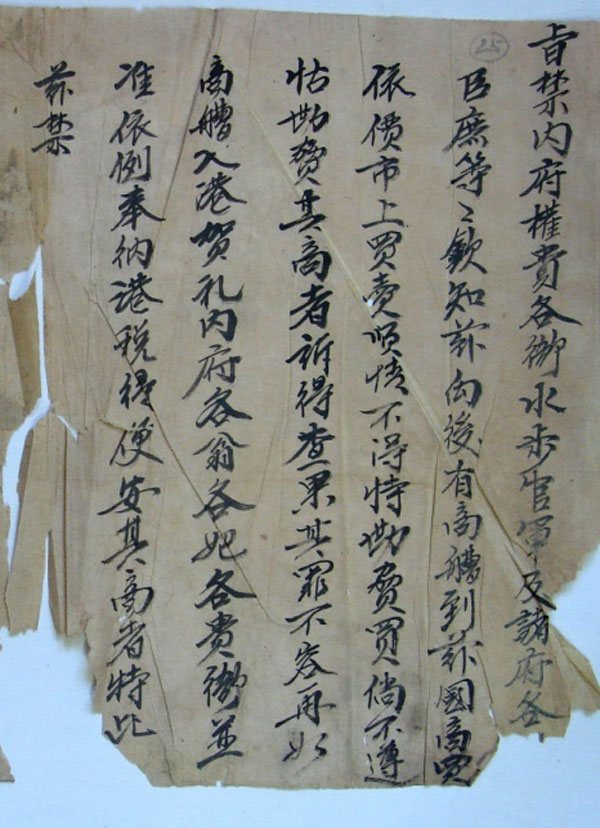 25
旨禁内府權貴各衙水步官軍及諸府各
臣庶等〻欽知茲向後有商艚到茲國商買
依價市上買賣順情不得恃勒賫買倘不遵
怙勒賫其商者訴得查果其罪不容再如
商艚入港賀礼内府各翁各妃各貴衙並
准依例奉納港稅得便安其商者特此
茲禁